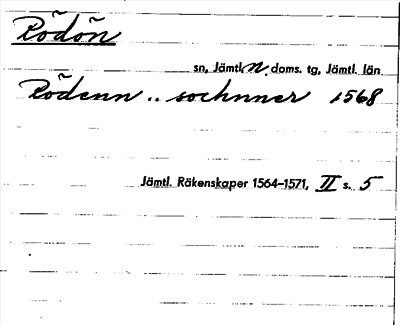 Rödön
sn, Jämtl. n. doms. tg, Jämtl. län
Rödenn .. sochnner 1568
Jämtl. Räkenskaper 1564–1571, II s. 5